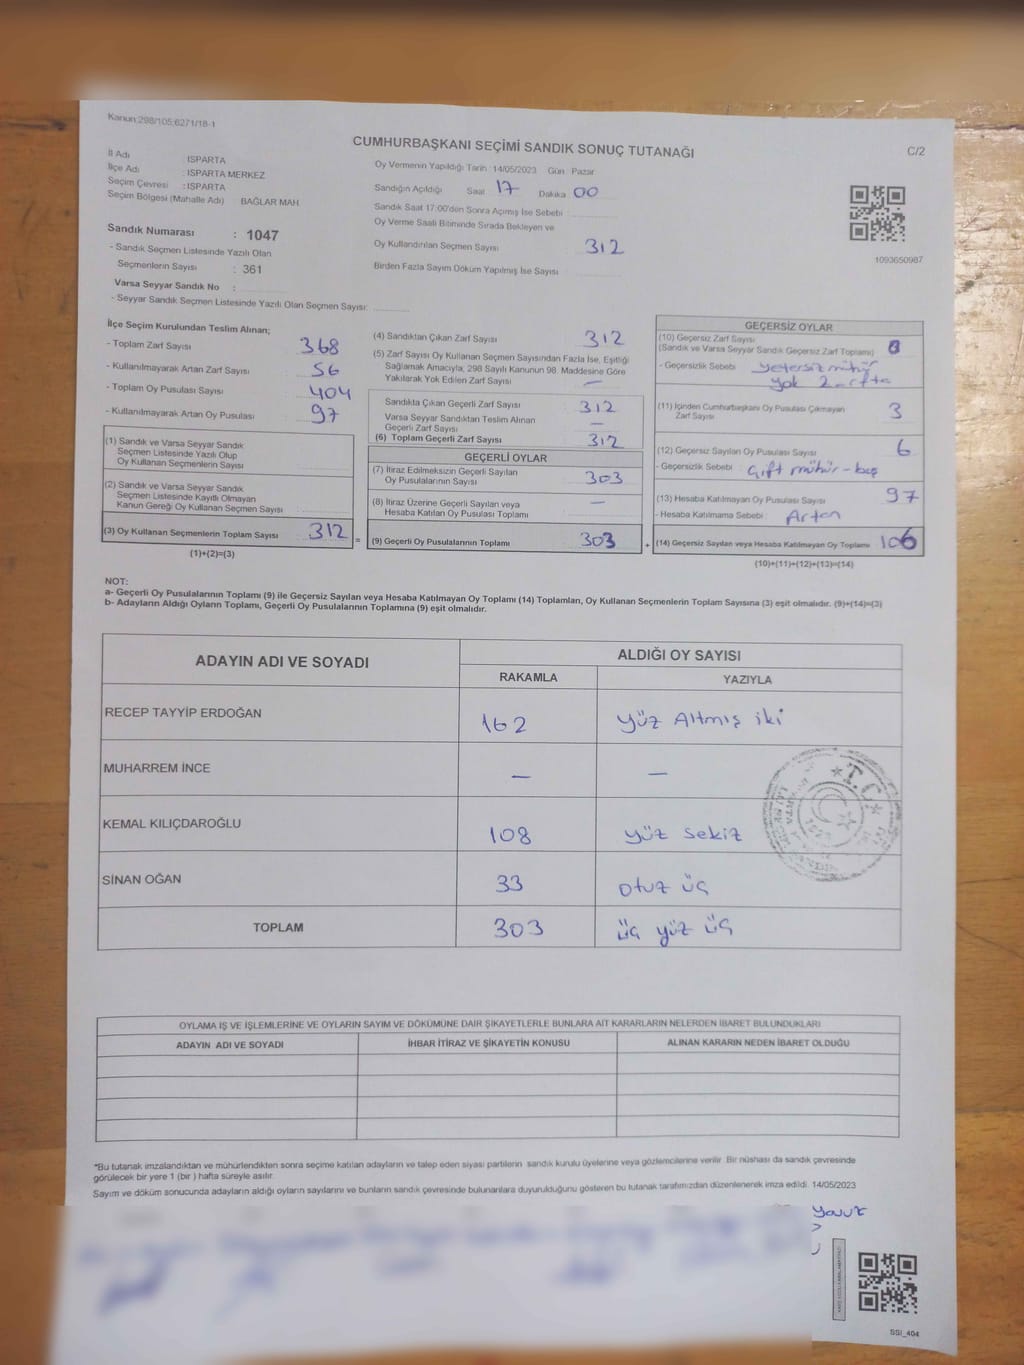 Kanun:298/105;6271/18-1
CUMHURBAŞKANI SEÇİMİ SANDIK SONUÇ TUTANAĞI
C/2
İl Adı : ISPARTA
İlçe Adı : ISPARTA MERKEZ
Seçim Çevresi : ISPARTA
Seçim Bölgesi (Mahalle Adı) : BAĞLAR MAH.
Sandık Numarası : 1047
- Sandık Seçmen Listesinde Yazılı Olan
Seçmenlerin Sayısı : 361
Varsa Seyyar Sandık No :
- Seyyar Sandık Seçmen Listesinde Yazılı Olan Seçmen Sayısı:
Oy Vermenin Yapıldığı Tarih : 14/05/2023 Gün : Pazar
Sandığın Açıldığı Saat 17 Dakika 00
Sandık Saat 17:00'den Sonra Açımış İse Sebebi
Oy Verme Saati Bitiminde Sırada Bekleyen ve
Oy Kullandırılan Seçmen Sayısı 312
Birden Fazla Sayım Döküm Yapılmış İse Sayısı
1093650987
İlçe Seçim Kurulundan Teslim Alınan;
- Toplam Zarf Sayısı 368
- Kullanılmayarak Artan Zarf Sayısı 56
- Toplam Oy Pusulası Sayısı 404
- Kullanılmayarak Artan Oy Pusulası 97
(1) Sandık ve Varsa Seyyar Sandık
Seçmen Listesinde Yazılı Olup
Oy Kullanan Seçmenlerin Sayısı
(2) Sandık ve Varsa Seyyar Sandık
Seçmen Listesinde Kayıtlı Olmayan
Kanun Gereği Oy Kullanan Seçmen Sayısı
(3) Oy Kullanan Seçmenlerin Toplam Sayısı 312
(1)+(2)=(3)
(4) Sandıktan Çıkan Zarf Sayısı 312
(5) Zarf Sayısı Oy Kullanan Seçmen Sayısından Fazla İse, Eşitliği
Sağlamak Amacıyla, 298 Sayılı Kanunun 98. Maddesine Göre
Yakılarak Yok Edilen Zarf Sayısı —
Sandıkta Çıkan Geçerli Zarf Sayısı 312
Varsa Seyyar Sandıktan Teslim Alınan
Geçerli Zarf Sayısı —
(6) Toplam Geçerli Zarf Sayısı 312
GEÇERLİ OYLAR
(7) İtiraz Edilmeksizin Geçerli Sayılan
Oy Pusulalarının Sayısı 303
(8) İtiraz Üzerine Geçerli Sayılan veya
Hesaba Katılan Oy Pusulası Toplamı —
= (9) Geçerli Oy Pusulalarının Toplamı 303
GEÇERSİZ OYLAR
(10) Geçersiz Zarf Sayısı
(Sandık ve Varsa Seyyar Sandık Geçersiz Zarf Toplamı)
- Geçersizlik Sebebi yetersiz mühür
yok 2 zarfta
(11) İçinden Cumhurbaşkanı Oy Pusulası Çıkmayan
Zarf Sayısı 3
(12) Geçersiz Sayılan Oy Pusulası Sayısı 6
- Geçersizlik Sebebi : çift mühür - boş
(13) Hesaba Katılmayan Oy Pusulası Sayısı 97
- Hesaba Katılmama Sebebi : Artan
+ (14) Geçersiz Sayılan veya Hesaba Katılmayan Oy Toplamı 106
(10)+(11)+(12)+(13)=(14)
NOT:
a- Geçerli Oy Pusulalarının Toplamı (9) ile Geçersiz Sayılan veya Hesaba Katılmayan Oy Toplamı (14) Toplamları, Oy Kullanan Seçmenlerin Toplam Sayısına (3) eşit olmalıdır. (9)+(14)=(3)
b- Adayların Aldığı Oyların Toplamı, Geçerli Oy Pusulalarının Toplamına (9) eşit olmalıdır.
ADAYIN ADI VE SOYADI
ALDIĞI OY SAYISI
RAKAMLA YAZIYLA
RECEP TAYYİP ERDOĞAN 162 yüz Altmış iki
MUHARREM İNCE — —
KEMAL KILIÇDAROĞLU 108 yüz sekiz
SİNAN OĞAN 33 otuz üç
TOPLAM 303 üç yüz üç
T.C.
OYLAMA İŞ VE İŞLEMLERİNE VE OYLARIN SAYIM VE DÖKÜMÜNE DAİR ŞİKAYETLERLE BUNLARA AİT KARARLARIN NELERDEN İBARET BULUNDUKLARI
ADAYIN ADI VE SOYADI İHBAR İTİRAZ VE ŞİKAYETİN KONUSU ALINAN KARARIN NEDEN İBARET OLDUĞU
*Bu tutanak imzalandıktan ve mühürlendikten sonra seçime katılan adayların ve talep eden siyasi partilerin sandık kurulu üyelerine veya gözlemcilerine verilir. Bir nüshası da sandık çevresinde
görülecek bir yere 1 (bir ) hafta süreyle asılır.
Sayım ve döküm sonucunda adayların aldığı oyların sayılarını ve bunların sandık çevresinde bulunanlara duyurulduğunu gösteren bu tutanak tarafımızdan düzenlenerek imza edildi. 14/05/2023
Yavuz
SSI_404